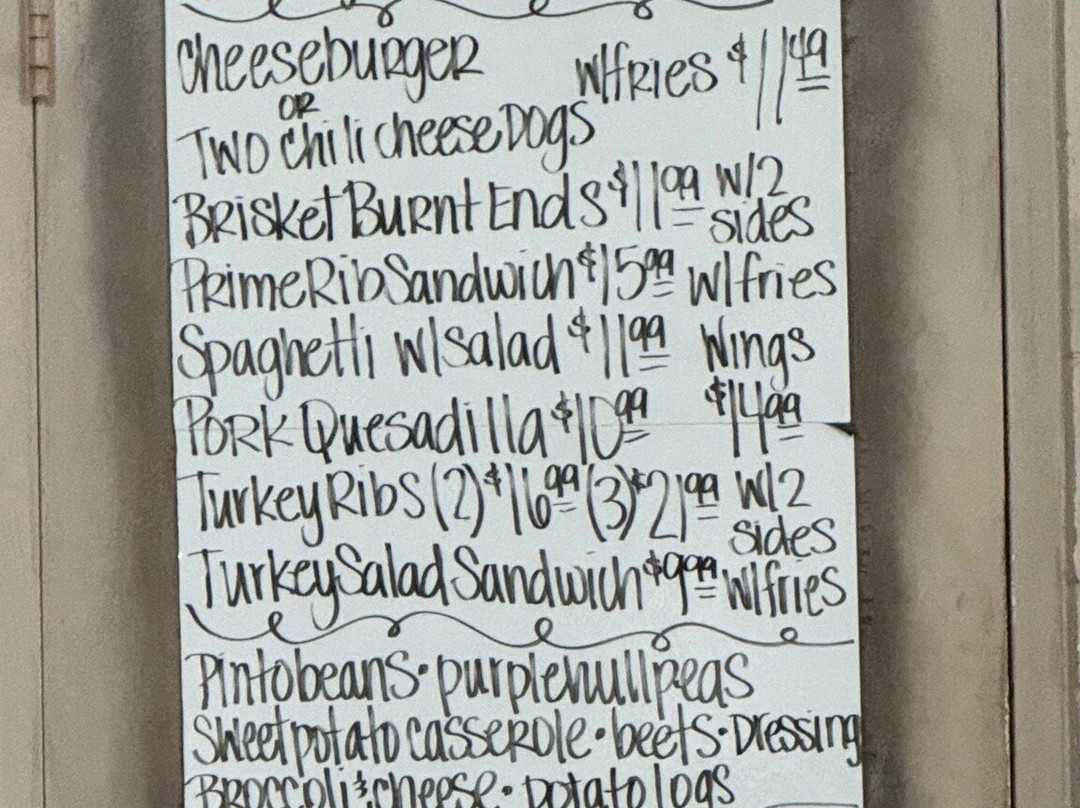 Cheeseburger w/fries $11.49
OR
Two Chili cheese Dogs
Brisket Burnt Ends $11.99 w/2 sides
Prime Rib Sandwich $15.99 w/fries
Spaghetti w/Salad $11.99 Wings
Pork Quesadilla $10.99 $14.99
Turkey Ribs (2) $16.99 (3) $21.99 w/2 sides
Turkey Salad Sandwich $9.99 w/fries
Pinto beans • purplehull peas
Sweet potato casserole • beets • Dressing
Broccoli & cheese • potato logs